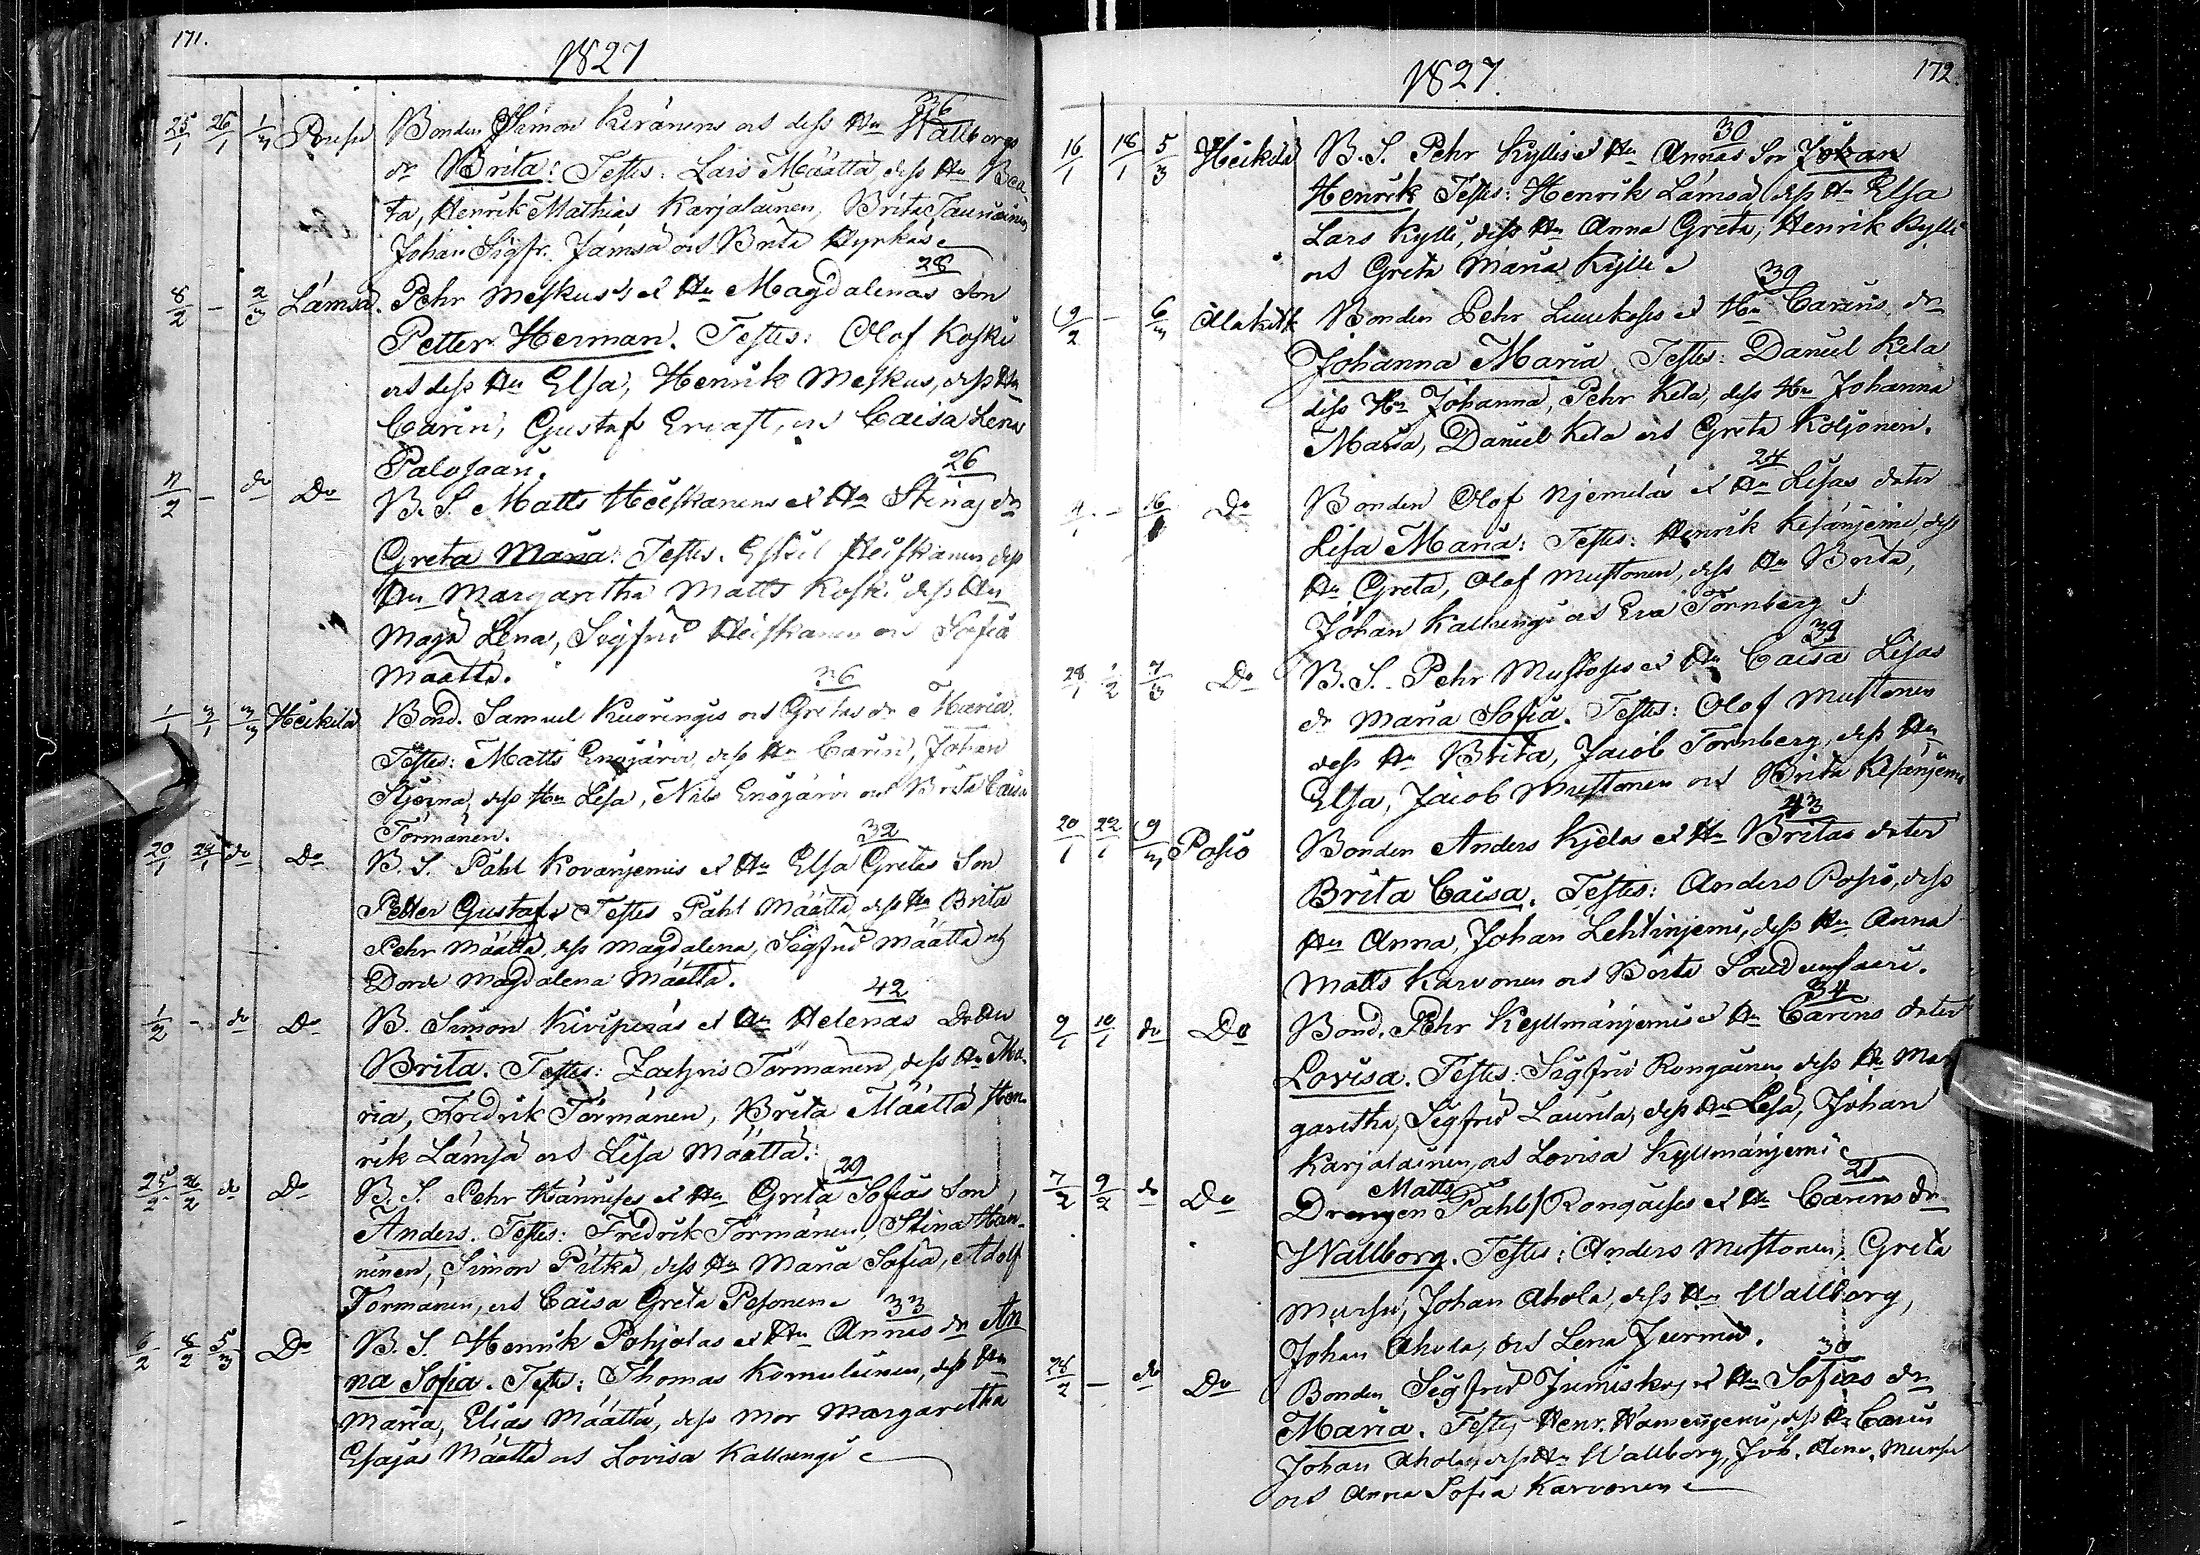 171.
1827
36
25/1 26/1 1/3 Bonden Simon Keränens och dess Hu Wallborgs
dr Brita: Testes: Lars Määttä, dess Hu Bea-
ta, Henrik Mathias Karjalainen, Brita Tauriainen
Johan Sigfr. Jämsä och Brita Hyrkäs
28
8/2 – 2/3 Lämsä. Pehr Meskus's et Hu Magdalenas Son
Petter Herman. Testes: Olof Koski
och dess Hu Elsa, Henrik Meskus, dess Hu
Carin, Gustaf Ervast, och Caisa Lena
Palosaari.
26
11/2 – do Do B. S. Matts Heiskanens et Hu Stinas dr
Greta Maria: Testes. Eskil Heiskanen dess
Hu Margaretha Matts Koski dess Hu
Magd Lena, Sigfrid Heiskanen och Sofia
Määttä.
26
1/1 3/1 3/3 Heikilä Bond. Samuel Kuoringis och Gretas dr Maria
Testes: Matts Enojärvi, dess Hu Carin, Johan
Stjerna, dess Hu Lisa, Nils Enojärvi och Brita Caisa
Törmänen.
32
20/1 24/1 do Do B. S. Påhl Kovanjemis et Hu Elsa Gretas Son
Petter Gustaf. Testes Påhl Määttä dess Hu Brita
Pehr Määttä, dess Magdalena, Sigfrid Määttä och
Magdalena Määttä.
42
1/2 – do Do B. Simon Kiviperäs et Hu Helenas Dotter
Brita. Testes: Zachris Törmänen, dess Hu Ma-
ria, Fredrik Törmänen, Brita Määttä, Hen-
rik Lämsä och Lisa Määttä.
29
25/2 26/2 do Do B. S. Pehr Hännises et Hu Greta Sofias Son
Anders. Testes: Fredrik Törmänen, Stina Hän-
ninen, Simon Pätkä, dess Hu Maria Sofia, Adolf
Törmänen, och Caisa Greta Pesonen
33
6/2 8/2 5/3 Do B. S. Henrik Pohjolas et Hu Annas dr An
na Sofia. Testes: Thomas Komulainen, dess Hu
Maria, Elias Määttä, dess mor Margaretha
Esajas Määttä och Lovisa Kallunge
172.
1827.
30
16/1 18/1 5/3 Heikilä B. S. Pehr Kyllis et Hu Annas Son Johan
Henrik Testes: Henrik Lämsä dess Hu Elsa
Lars Kylli, dess Hu Anna Greta, Henrik Kylli
och Greta Maria Kylli
39
9/2 – 6/3 Bonden Pehr Luukoses et Hu Carins dr
Johanna Maria Testes: Daniel Kela
dess Hu Johanna, Pehr Kela, dess Hu Johanna
Maria, Daniel Kela och Greta Koljonen.
24
– 16 Do Bonden Olof Njemeläs et Hu Lisas doter
Lisa Maria: Testes: Henrik Kesänjemi, dess
Hu Greta, Olof Mustonen, dess Hu Brita,
Johan Kallunge och Eva Törnberg
39
28/1 1/2 7/3 Do B. S. Pehr Mustoses et Hu Caisa Lisas
dr Maria Sofia. Testes: Olof Mustonen
dess Hu Brita, Jacob Törnberg, dess Hu
Elsa, Jacob Mustonen och Brita Kesänjemi
43
20/1 22/1 9/3 Posio Bonden Anders Kjelas et Hu Britas doter
Brita Caisa. Testes: Anders Posio, dess
Hu Anna, Johan Lehtinjemi, dess Hu Anna
Matts Karvonen och Brita
34
9/1 10/1 do Do Bond. Pehr Kyllmänjemis et Hu Carins doter
Lovisa. Testes: Sigfrid Rongainen, dess Hu Mar
garetha, Sigfrid Laurila, dess Hu Lisa, Johan
Karjalainen, och Lovisa Kyllmänjemi
21
Matts
7/2 9/2 do Do Drengen Påhls Rongaises et Hu Carins dr
Wallborg. Testes: Anders Mustonen, Greta
Mursu, Johan Ahola, dess Hu Wallborg,
Johan Ahola, och Lena Juurmu.
30
28/2 – do Do Bonden Sigfrid Jumiskos et Hu Sofias dr
Maria. Testes, Henr. dess Hu Carin
Johan Ahola, dess Hu Wallborg, Joh. Henr. Mursu
och Anna Sofia Karvonen